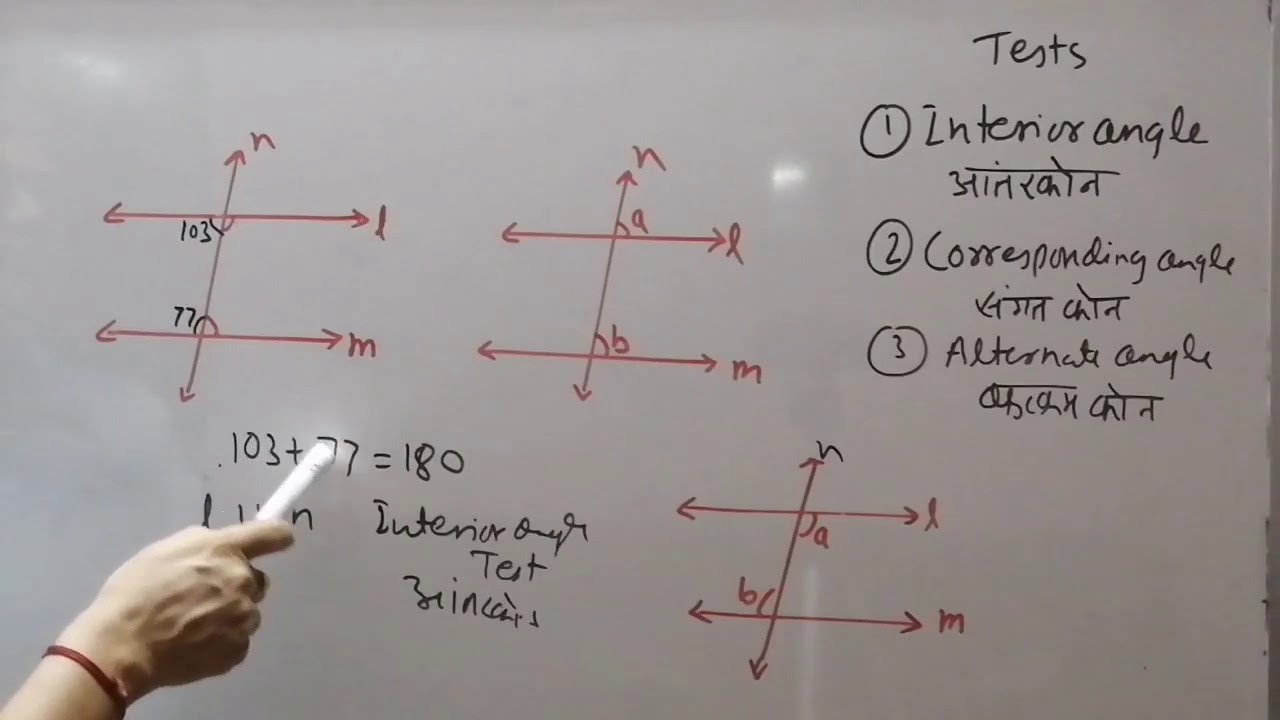 Tests
① Interior angle
आंतरकोन
② Corresponding angle
संगत कोन
③ Alternate angle
कोन
n
103
l
77
m
n
a
l
b
m
103+77=180
l
Interior angle
Test
n
l
a
b
m